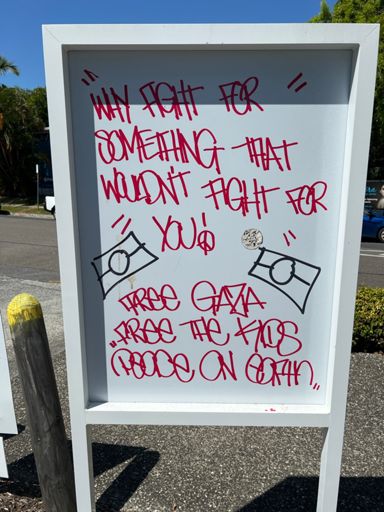 "WHY FIGHT FOR "
SOMETHING THAT
WOULDN'T FIGHT FOR
" YOU! "
FREE GAZA
"FREE THE KIDS
PEACE ON EARTH"